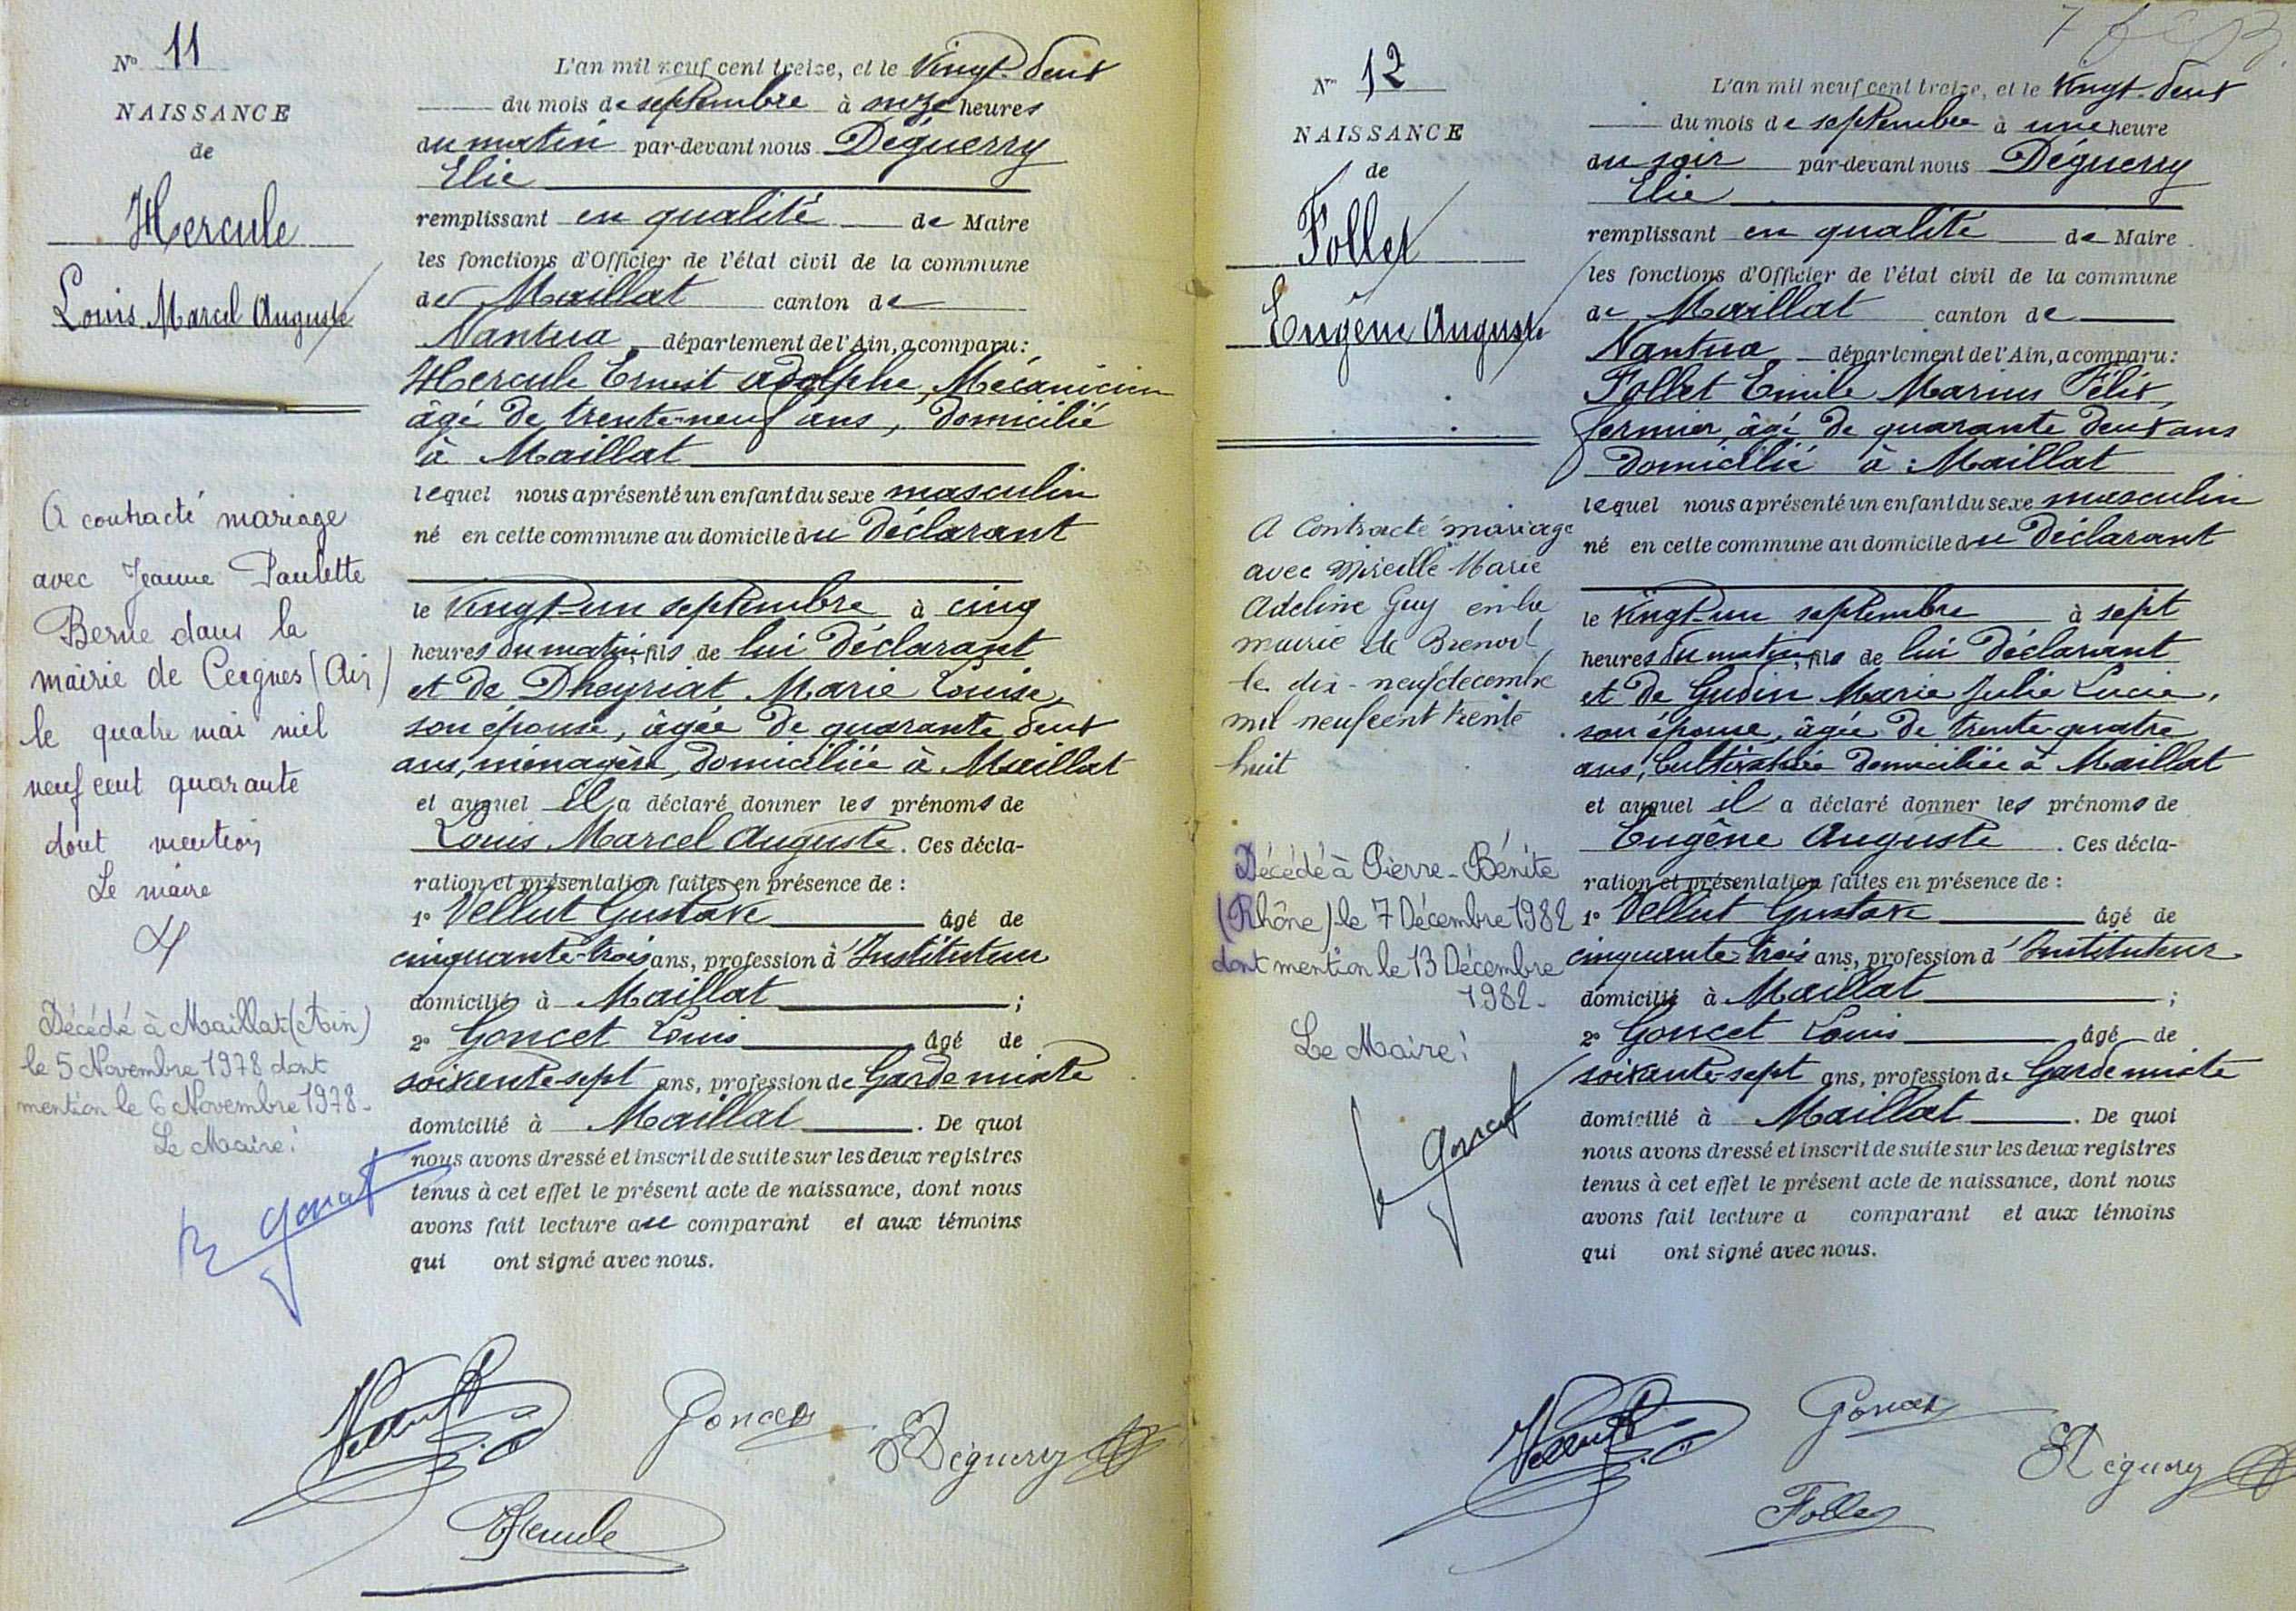 N° 11
NAISSANCE
de
Hercule
Louis Marcel Auguste
A contracté mariage
avec Jeanne Paulette
Berne dans la
mairie de Ceignes (Ain)
le quatre mai mil
neuf cent quarante
dont mention
Le maire
Décédé à Maillat (Ain)
le 5 Novembre 1978 dont
mention le 6 Novembre 1978-
Le Maire:
L'an mil neuf cent treize, et le Vingt-deux
du mois de septembre à onze heures
du matin par-devant nous Déguerry
Elie
remplissant en qualité de Maire
les fonctions d'Officier de l'état civil de la commune
de Maillat canton de
Nantua département de l'Ain, a comparu:
Hercule Ernest Adolphe, Mécanicien
âgé de trente-neuf ans, domicilié
à Maillat
lequel nous a présenté un enfant du sexe masculin
né en cette commune au domicile du déclarant
le Vingt-un septembre à cinq
heures du matin, fils de lui déclarant
et de Dheyriat Marie Louise,
son épouse, âgée de quarante deux
ans, ménagère, domiciliée à Maillat
et auquel il a déclaré donner les prénoms de
Louis Marcel Auguste. Ces décla-
ration et présentation faites en présence de:
1° Vellut Gustave âgé de
cinquante-trois ans, profession d'Instituteur
domicilié à Maillat ;
2° Goncet Louis âgé de
soixante-sept ans, profession de Garde mixte
domicilié à Maillat. De quoi
nous avons dressé et inscrit de suite sur les deux registres
tenus à cet effet le présent acte de naissance, dont nous
avons fait lecture au comparant et aux témoins
qui ont signé avec nous.
Vellut Goncet Déguerry
Hercule
N° 12
NAISSANCE
de
Follet
Eugène Auguste
A Contracté mariage
avec Mireille Marie
Adeline Guy en la
mairie de Brenod
le dix-neuf décembre
mil neuf cent trente
huit
Décédé à Pierre-Bénite
(Rhône) le 7 Décembre 1982
dont mention le 13 Décembre
1982-
Le Maire:
L'an mil neuf cent treize, et le Vingt-deux
du mois de septembre à une heure
du soir par-devant nous Déguerry
Elie
remplissant en qualité de Maire
les fonctions d'Officier de l'état civil de la commune
de Maillat canton de
Nantua département de l'Ain, a comparu:
Follet Emile Marius Félix,
fermier âgé de quarante deux ans
domicilié à Maillat
lequel nous a présenté un enfant du sexe masculin
né en cette commune au domicile du déclarant
le Vingt-un septembre à sept
heures du matin, fils de lui déclarant
et de Gudin Marie Julie Lucie,
son épouse, âgée de trente-quatre
ans, Cultivatrice domiciliée à Maillat
et auquel il a déclaré donner les prénoms de
Eugène Auguste. Ces décla-
ration et présentation faites en présence de:
1° Vellut Gustave âgé de
cinquante-trois ans, profession d'Instituteur
domicilié à Maillat ;
2° Goncet Louis âgé de
soixante-sept ans, profession de Garde mixte
domicilié à Maillat. De quoi
nous avons dressé et inscrit de suite sur les deux registres
tenus à cet effet le présent acte de naissance, dont nous
avons fait lecture a comparant et aux témoins
qui ont signé avec nous.
Vellut Goncet Déguerry
Follet